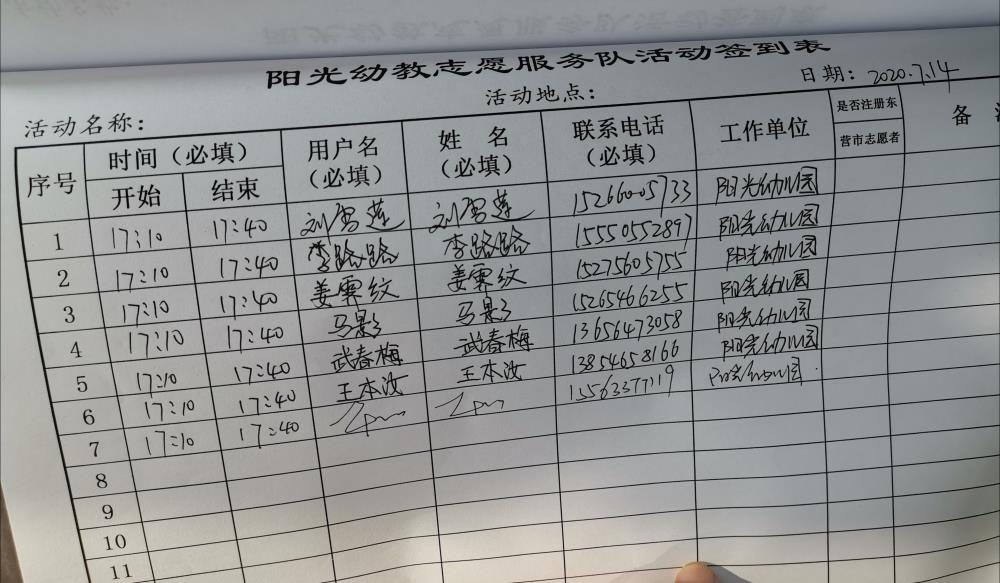 阳光幼教志愿服务队活动签到表
活动名称： 活动地点： 日期：2020.7.14
序号 时间（必填） 用户名（必填） 姓 名（必填） 联系电话（必填） 工作单位 是否注册东营市志愿者 备
开始 结束
1 17:10 17:40 刘雪莲 刘雪莲 15266005733 阳光幼儿园
2 17:10 17:40 李路路 李路路 15550552897 阳光幼儿园
3 17:10 17:40 姜霁纹 姜霁纹 15275605755 阳光幼儿园
4 17:10 17:40 马影 马影 15265466255 阳光幼儿园
5 17:10 17:40 武春梅 武春梅 13656473058 阳光幼儿园
6 17:10 17:40 王本汝 王本汝 13854658166 阳光幼儿园
7 17:10 17:40 15563377119 阳光幼儿园
8
9
10
11